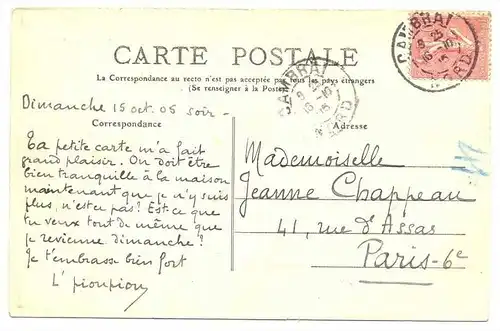 CARTE POSTALE
La Correspondance au recto n'est pas acceptée par tous les pays étrangers
(Se renseigner à la Poste)
CAMBRAI
9 25
16 - 10
05
NORD
CAMBRAI
9
16 - 10
05
NORD
Dimanche 15 oct. 05 soir -
Correspondance
Adresse
Ta petite carte m'a fait
grand plaisir. On doit être
bien tranquille à la maison
maintenant que je n'y suis
plus, n'est-ce pas? Est-ce que
tu veux tout de même que
je revienne dimanche?
Je t'embrasse bien fort
L' pioupiou
Mademoiselle
Jeanne Chappeau
41, rue d'Assas
Paris-6e